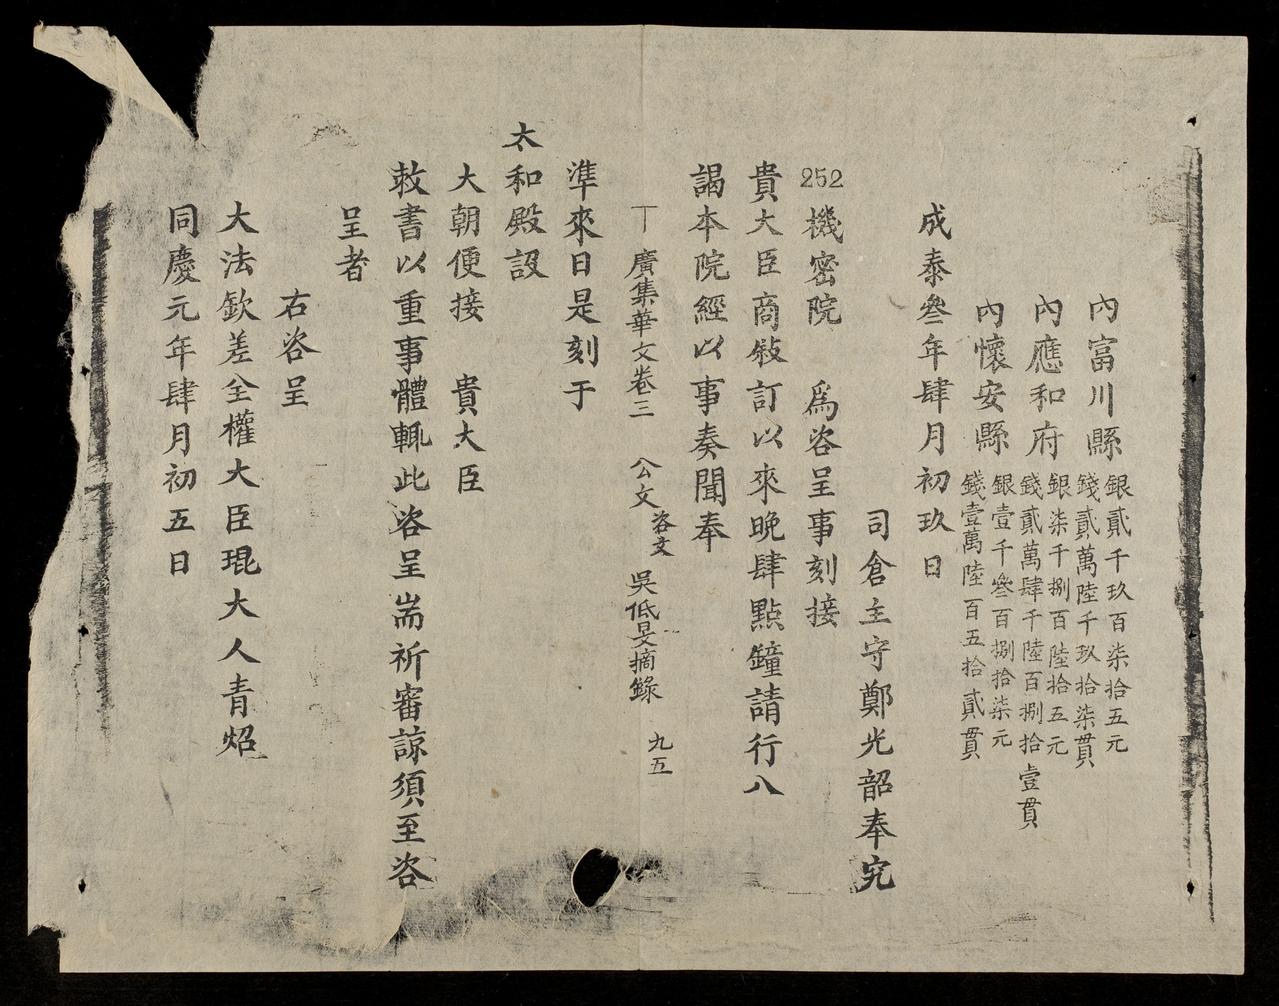 內富川縣 銀貳千玖百柒拾五元
錢貳萬陸千玖拾柒貫
內應和府 銀柒千捌百陸拾五元
錢貳萬肆千陸百捌拾壹貫
內懷安縣 銀壹千叄百捌拾柒元
錢壹萬陸百五拾貳貫
成泰叄年肆月初玖日
司倉主守鄭光韶奉究
252 機密院 爲咨呈事刻接
貴大臣商敍訂以來晚肆點鐘請行八
謁本院經以事奏聞奉
丅 廣集華文卷三 公文 咨文 吳低旻摘錄 九五
準來日是刻于
太和殿設
大朝便接 貴大臣
敕書以重事體輒此咨呈耑祈審諒須至咨
呈者
右咨呈
大法欽差全權大臣琨大人青炤
同慶元年肆月初五日